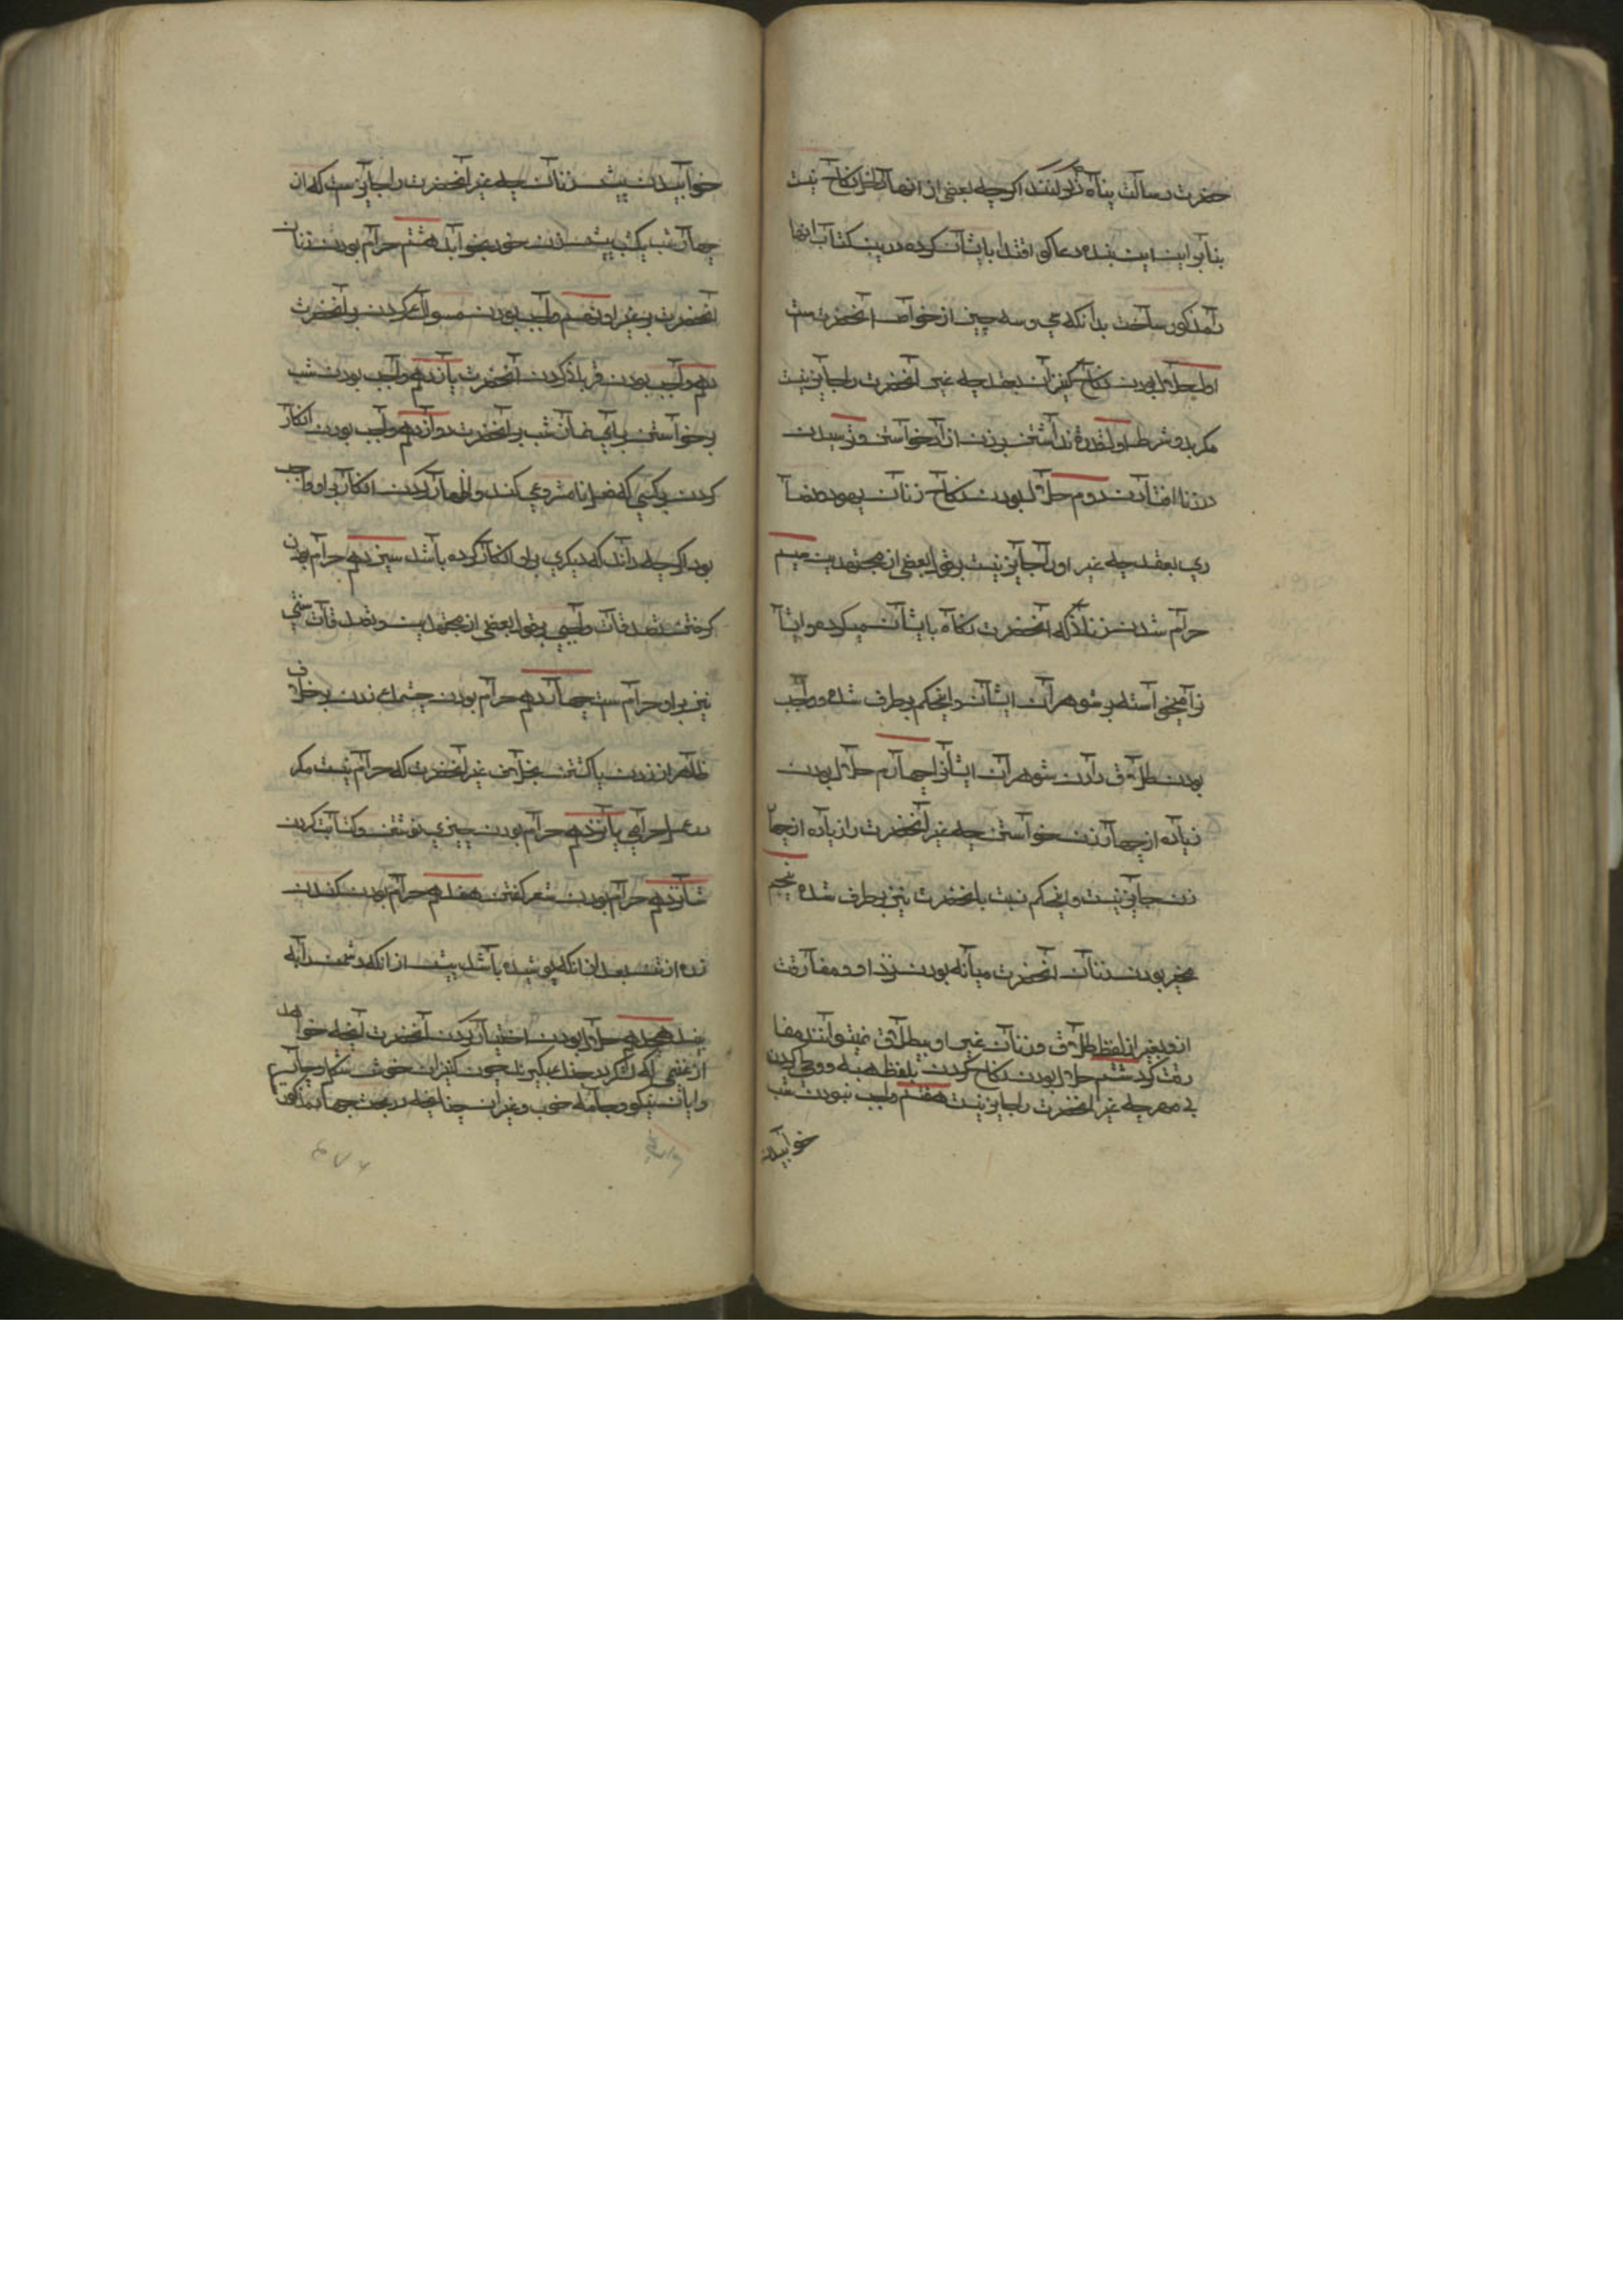 حضرت رسالت پناه ذکر کنند اکرچه بعضی از انها در نکاح نیست
بنابراین این بنده دعاکوی اقتدا بایشان کرده درین کتاب انها
را مذکور ساخت بدانکه سی و سه چیز از خواص آنحضرتست
اول حلال بودن نکاح کنیزان بعقد چه غیر آنحضرت را جایز نیست
مکر بدو شرط اول قدرة نداشتن بر زن ازاد خواستن و ترسیدن
در زنا افتادن دوم حلال بودن نکاح زنان یهود و نصا
ری بعقد چه غیر او را جایز نیست بقول بعضی از مجتهدین سیم
حرام شدن زنانی که آنحضرت نکاه بایشان میکرد و ایشا
نرا میخواسته بر شوهران ایشان و اینحکم برطرف شده و واجب
بودن طلاق دادن شوهران ایشانرا چهارم حلال بودن
زیاده از چهار زن خواستن چه غیر آنحضرت را زیاده از چها
زن جایز نیست و اینحکم نسبت بانحضرت نیز برطرف شده پنجم
مخیر بودن زنان آنحضرت میانه بودن نزد او و مفارقت
از و بغیر از لفظ طلاق و زنان غیر او بیطلاق نمیتوانند مفا
رقت کرد ششم حلال بودن نکاح کردن بلفظ هبه و وطی کردن
بی مهر چه غیر آنحضرت را جایز نیست هفتم واجب نبودن شب
خوابیدن
خوابیدن پیش زنان چه غیر آنحضرت را جایز نیست که از
چهار شب یکشب پیش زن خود نخوابد هشتم حرام بودن زنان
آنحضرت بر غیر او نهم واجب بودن مسواک کردن بر آنحضرت
دهم واجب بودن قربانی کردن آنحضرت یازدهم واجب بودن شب
برخواستن برای نماز شب بر آنحضرت دوازدهم واجب بودن انکار
کردن بر کسی که فعل نامشروعی کند و اظهار کردن انکار بر او واجب
بود اکرچه داند که دیکری بر او انکار کرده باشد سیزدهم حرام بودن
کرفتن تصدقات واجبی و بقول بعضی از مجتهدین و تصدقات سنتی
نیز بر او حرام ست چهاردهم حرام بودن چشمک زدن بر خلاف
ظاهر از زدن یا کشتن بخلاف غیر آنحضرت که حرام نیست مکر
در فعل حرامی پانزدهم حرام بودن چیزی نوشتن و کتابت کردن
شانزدهم حرام بودن شعر کفتن هفدهم حرام بودن کندن
زره از تن بعد از انکه پوشیده باشد پیش از انکه دشمن را به
بیند هجدهم حلال بودن اختیار کردن آنحضرت آنچه خواهد
از غنیمتی که لشکر در جنک بکیرند چون کنیزان خوش شکل و چارپا
و اسبان نیکو و جامه خوب و غیر آن چنانچه در بحث جهاد مذکور